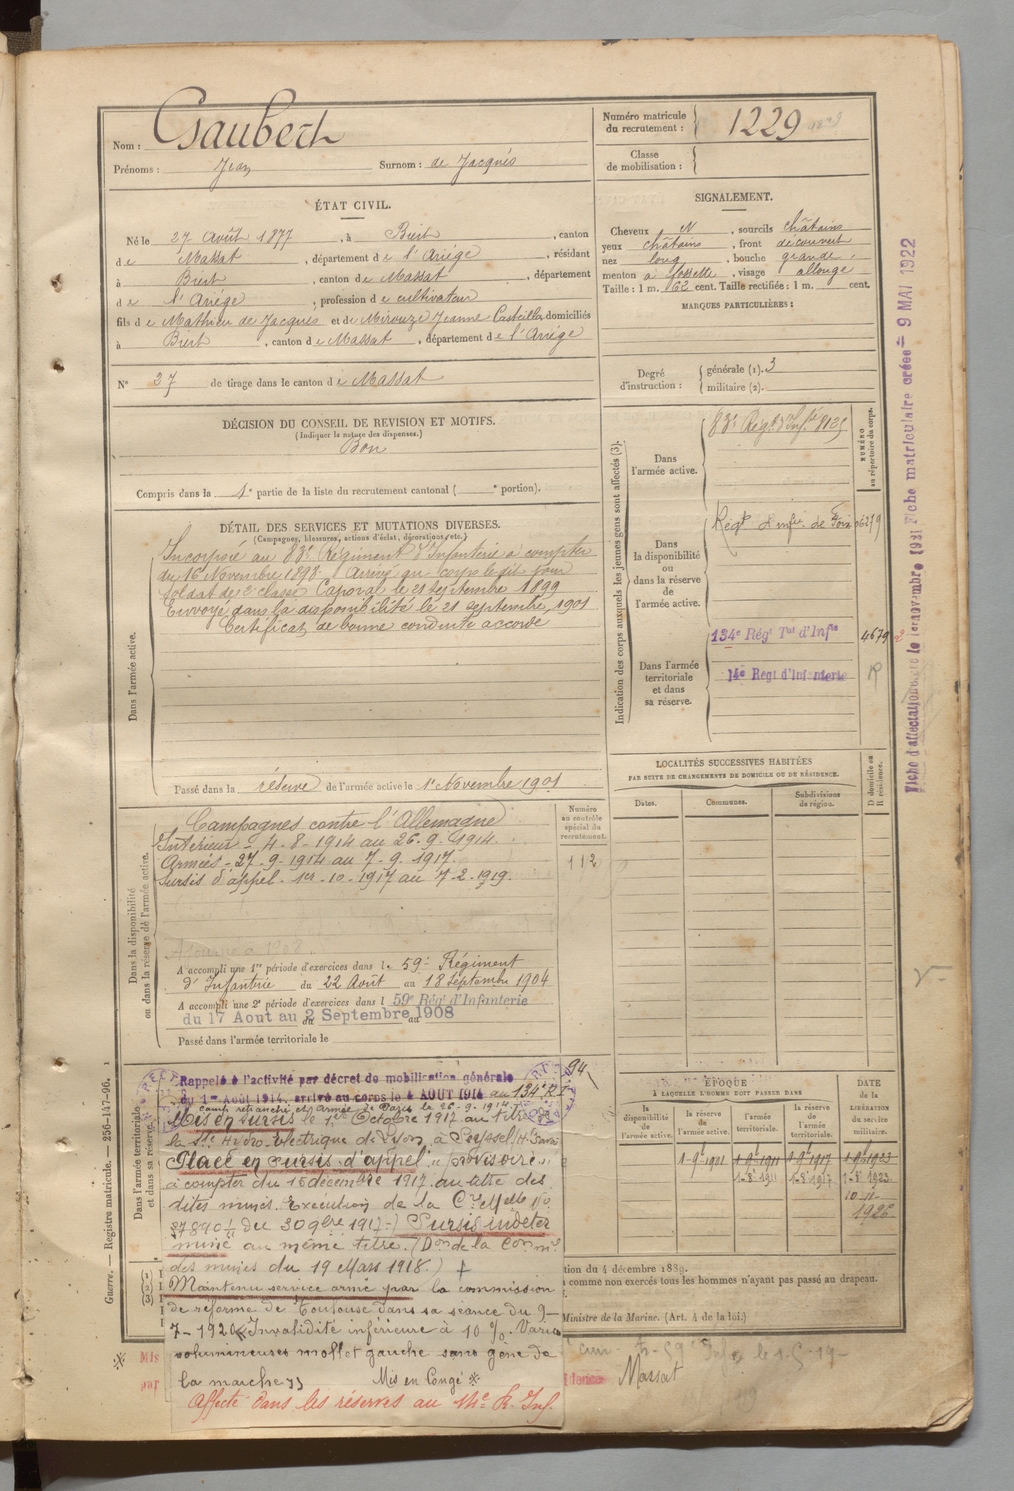 Nom : Gaubert
Prénoms : Jean Surnom : de Jacqués
Numéro matricule du recrutement : 1229
Classe de mobilisation :
ÉTAT CIVIL.
Né le 27 Août 1877, à Biert, canton
de Massat, département de l'Ariége, résidant
à Biert, canton de Massat, département
de l'Ariége, profession de cultivateur
fils de Mathieu de Jacqués et de Mirouze Jeanne Casteilla domiciliés
à Biert, canton de Massat, département de l'Ariége
N° 37 de tirage dans le canton de Massat
SIGNALEMENT.
Cheveux N, sourcils châtains
yeux châtains, front découvert
nez long, bouche grande
menton à fossette, visage allongé
Taille : 1 m. 62 cent. Taille rectifiée : 1 m. cent.
MARQUES PARTICULIÈRES :
Degré d'instruction : générale (1). 3
militaire (2).
DÉCISION DU CONSEIL DE REVISION ET MOTIFS.
(Indiquer la nature des dispenses.)
Bon
Compris dans la 1e partie de la liste du recrutement cantonal ( e portion).
DÉTAIL DES SERVICES ET MUTATIONS DIVERSES.
(Campagnes, blessures, actions d'éclat, décorations, etc.)
Dans l'armée active.
Incorporé au 83e Régiment d'Infanterie à compter
du 16 Novembre 1898. Arrivé au corps le dit jour
Soldat de 2e classe Caporal le 21 Septembre 1899
Envoyé dans la disponibilité le 21 septembre 1901
Certificat de bonne conduite accordé
Passé dans la réserve de l'armée active le 1er Novembre 1901
Indication des corps auxquels les jeunes gens sont affectés (3).
NUMÉRO au répertoire du corps.
Dans l'armée active.
83e Régt d'Infie 8125
Dans la disponibilité ou dans la réserve de l'armée active.
Régt d'infie de Foix 06279
Dans l'armée territoriale et dans sa réserve.
134e Régt Tal d'Infie 4679
14e Regt d'Infanterie
Fiche d'affectation
le 1er novembre 1921 Fiche matriculaire créée = 9 MAI 1922
LOCALITÉS SUCCESSIVES HABITÉES
PAR SUITE DE CHANGEMENTS DE DOMICILE OU DE RÉSIDENCE.
Dates. Communes. Subdivisions de région. D domicile ou R résidence.
Dans la disponibilité ou dans la réserve de l'armée active.
Numéro au contrôle spécial du recrutement.
112
Campagnes contre l'Allemagne
Intérieur - 4-8-1914 au 26-9-1914.
Armées - 27-9-1914 au 7-9-1917.
Sursis d'appel - 1er-10-1917 au 7-2-1919.
A accompli une 1re période d'exercices dans le 59e Régiment
d'Infanterie du 22 Août au 18 Septembre 1904
A accompli une 2e période d'exercices dans l 59e Rég d'Infanterie
du 17 Aout au 2 Septembre 1908
Passé dans l'armée territoriale le
Dans l'armée territoriale et dans sa réserve.
Rappelé à l'activité par décret de mobilisation générale
du 1er Août 1914, arrivé au corps le 4 AOUT 1914 au 134e R I
Camp retranché et Armée de Paris le 26-9-1914
Mis en sursis le 1er Octobre 1917 au titre de
la Sté Hydro-Electrique de Lyon à Seyssel
Placé en sursis d'appel "provisoire"
à compter du 15 décembre 1917 au titre des
dites mines. Exécution de la
du 30 9bre 1917 -) Sursis indéter
miné au même titre.
des mines du 19 Mars 1918.)
Maintenu service armé par la commission
de réforme de Toulouse dans sa séance du 9-
7-1920. Invalidité inférieure à 10 %. Varices
volumineuses mollet gauche sans gêne de
la marche Mis en Congé
Affecté dans les réserves au
94
ÉPOQUE
À LAQUELLE L'HOMME DOIT PASSER DANS
DATE DE LA LIBÉRATION du service militaire.
la disponibilité de l'armée active. la réserve de l'armée active. l'armée territoriale. la réserve de l'armée territoriale.
1-9bre 1901 1-9bre 1911 1-9bre 1917 1-9bre 1923
1-8bre 1911 1-8bre 1917 1-8bre 1923
10-11-
tion du 4 décembre 1889.
comme non exercés tous les hommes n'ayant pas passé au drapeau.
Ministre de la Marine. (Art. 4 de la loi.)
Mis
par
Massat
Guerre. — Registre matricule. — 256-147-96.